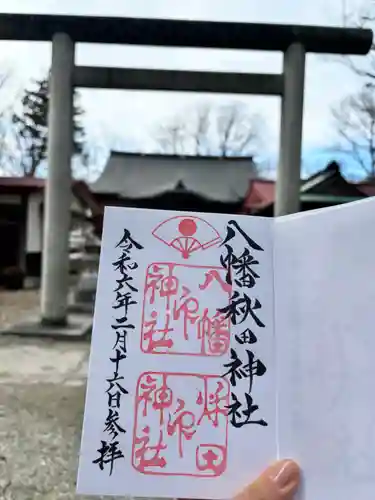 八幡秋田神社
八幡
神社
秋田
神社
令和六年二月十六日参拝